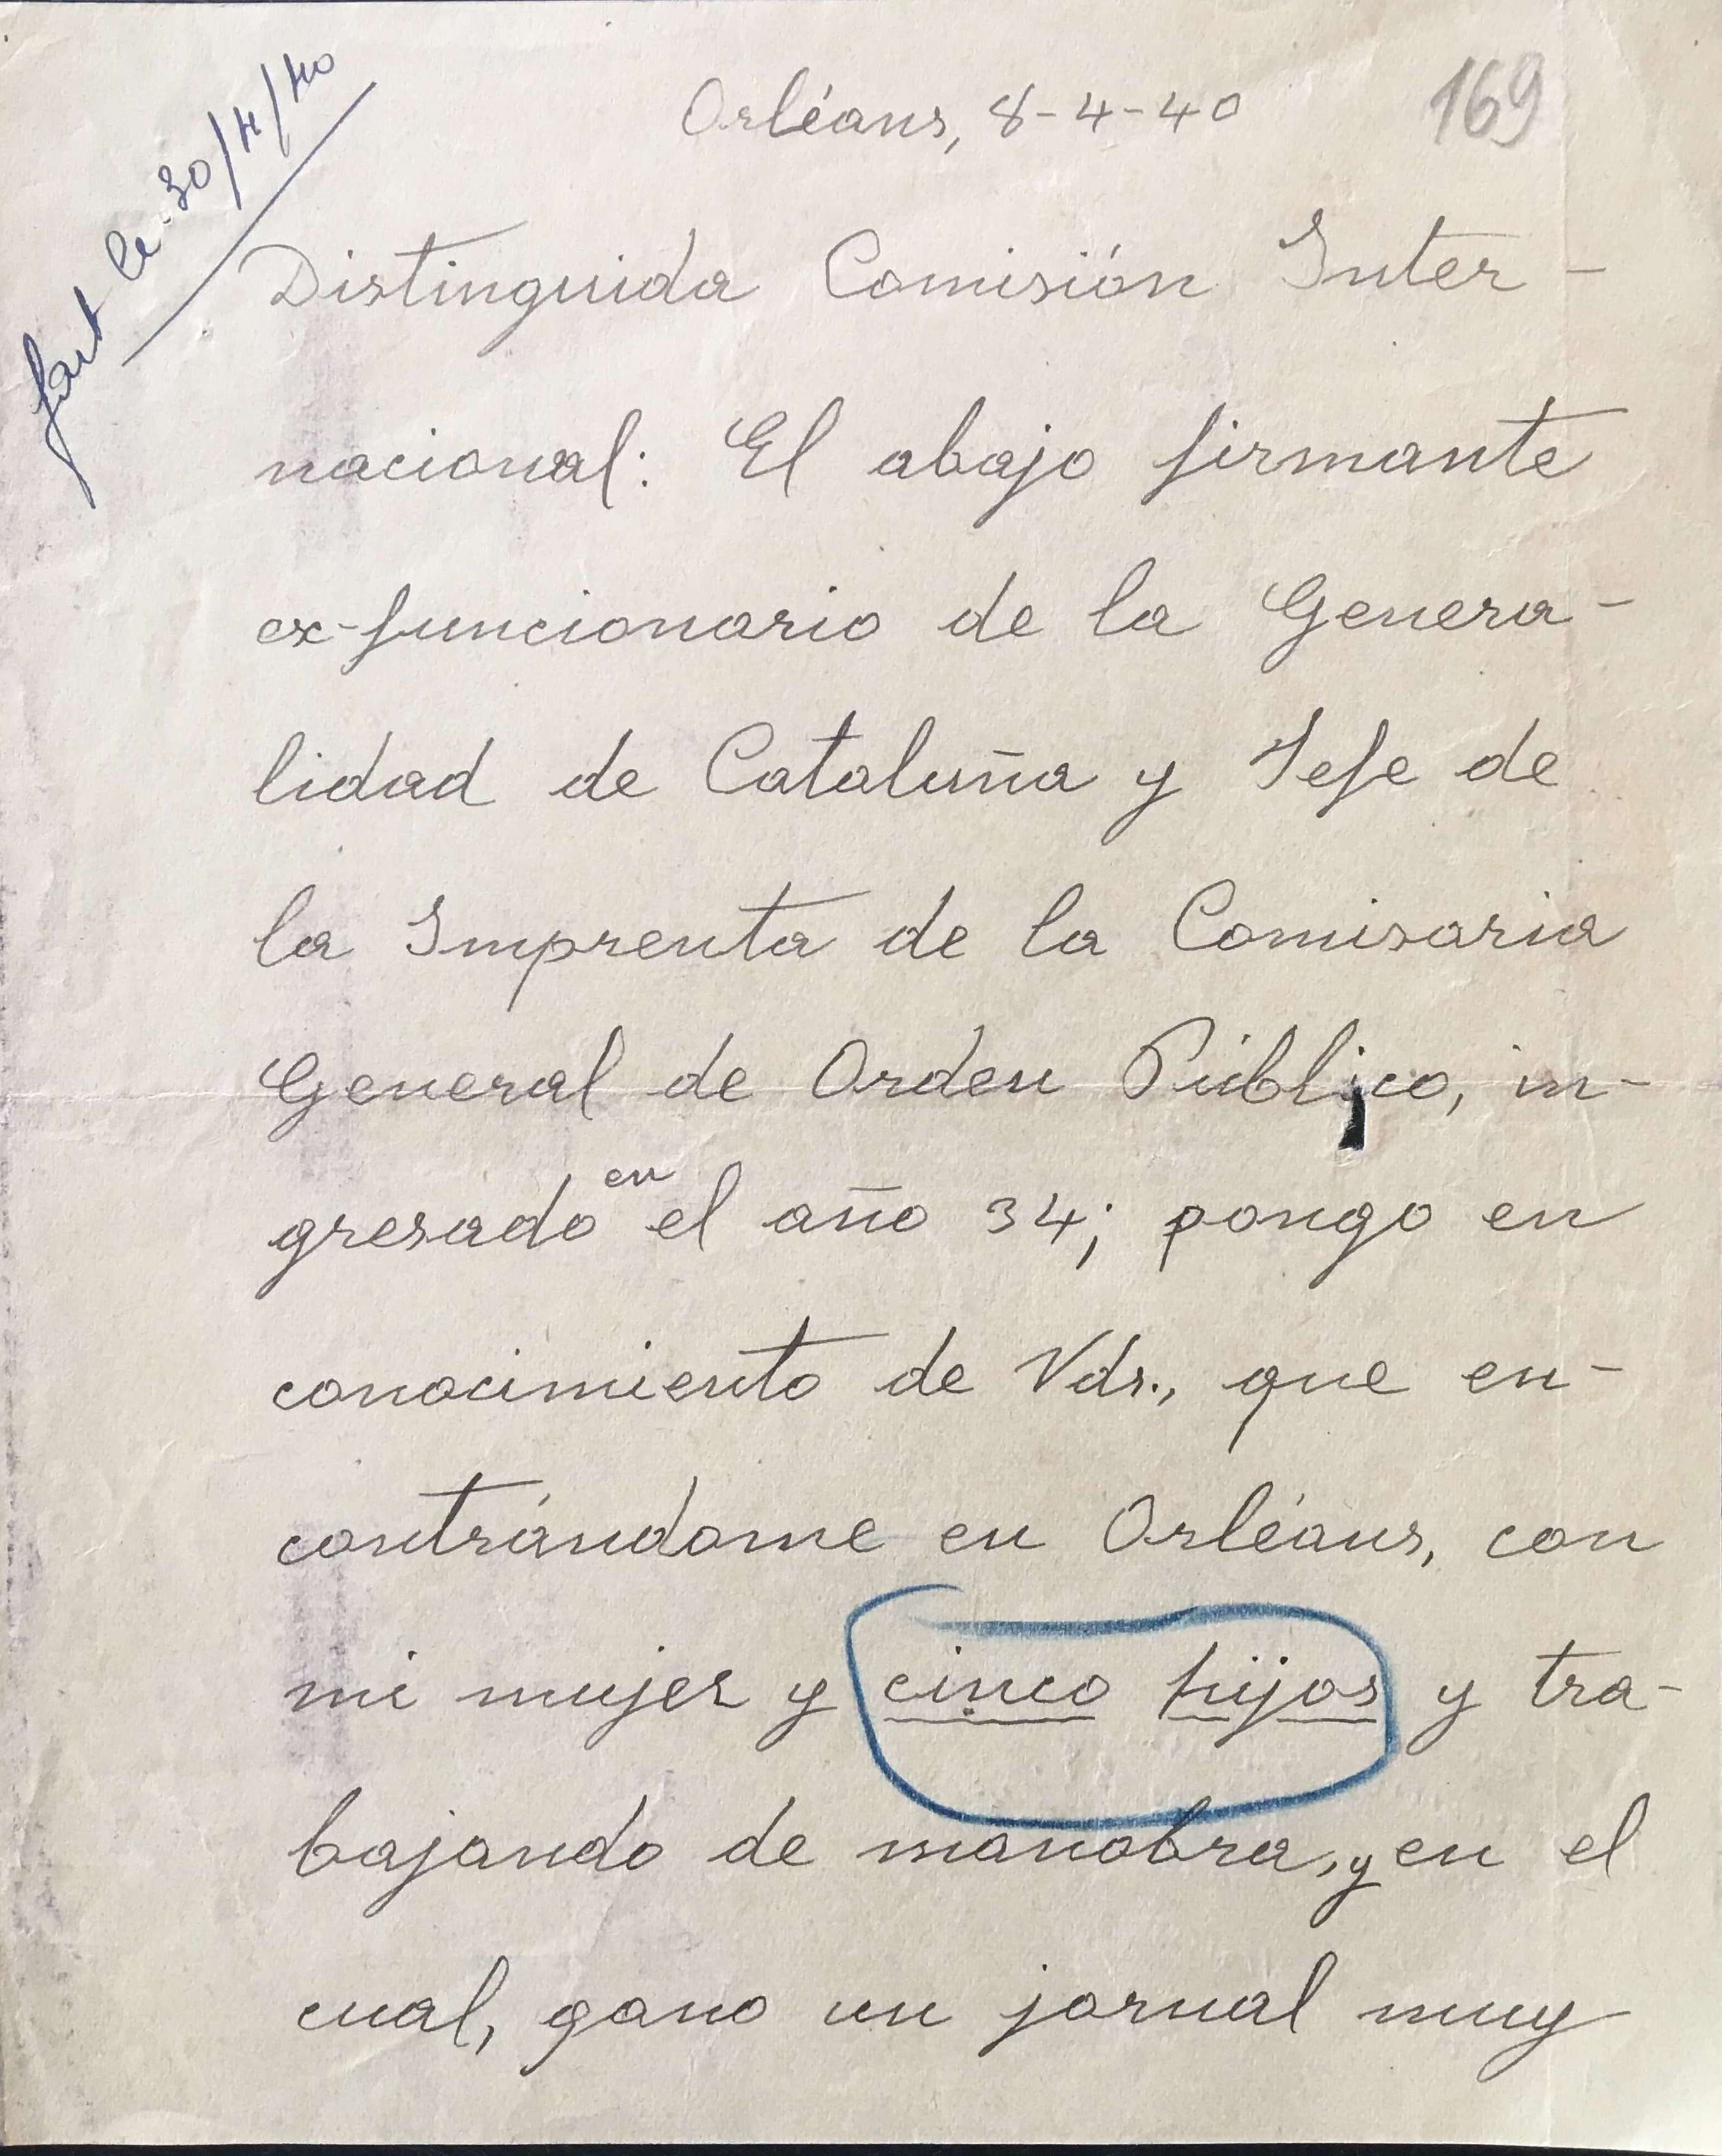 fait le 30/4/40
Orléans, 8-4-40
169
Distinguida Comisión Inter-
nacional: El abajo firmante
ex-funcionario de la Genera-
lidad de Cataluña y Jefe de
la Imprenta de la Comisaria
General de Orden Público, in-
gresado en el año 34; pongo en
conocimiento de Vds., que en-
contrándome en Orléans, con
mi mujer y cinco hijos y tra-
bajando de manobra, y en el
cual, gano un jornal muy